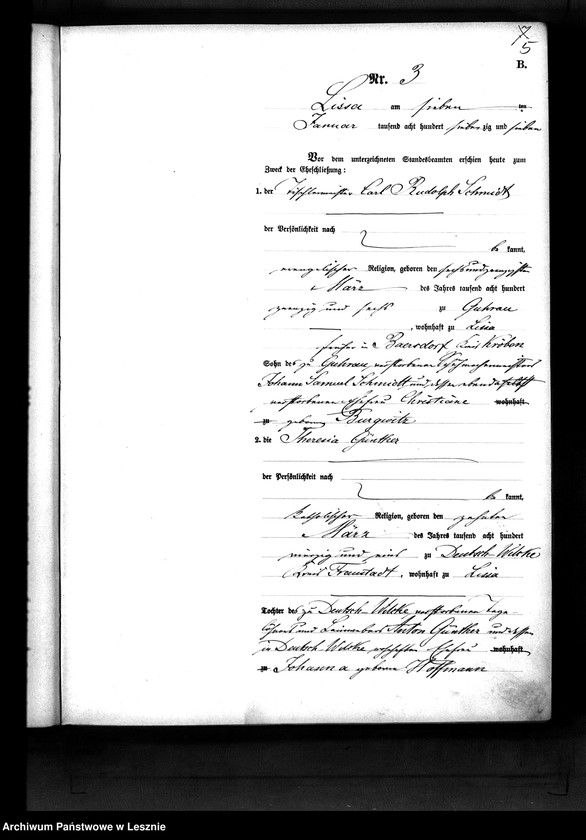 7
5
B.
Nr. 3
Lissa am sieben ten
Januar tausend acht hundert siebenzig und sieben
Vor dem unterzeichneten Standesbeamten erschien heute zum
Zweck der Eheschließung:
1. der Tischlermeister Carl Rudolph Schmidt
der Persönlichkeit nach
be kannt,
evangelischer Religion, geboren den sechsundzwanzigsten
März des Jahres tausend acht hundert
zwanzig und sechs zu Guhrau
, wohnhaft zu Lissa
früher in Baersdorf Kreis Kröben
Sohn des zu Guhrau verstorbenen
Johann Samuel Schmidt und dessen ebendaselbst
verstorbenen Ehefrau Christiane wohnhaft
zu geborne Burgwitz
2. die Theresia Günther
der Persönlichkeit nach
be kannt,
katholischer Religion, geboren den zehnten
März des Jahres tausend acht hundert
vierzig und eins zu Deutsch Wilcke
Kreis Fraustadt, wohnhaft zu Lissa
Tochter des zu Deutsch Wilcke verstorbenen Tage-
löhners und Anton Günther und dessen
in Deutsch Wilcke Ehefrau wohnhaft
zu Johanna geborene Hoffmann
Archiwum Państwowe w Lesznie